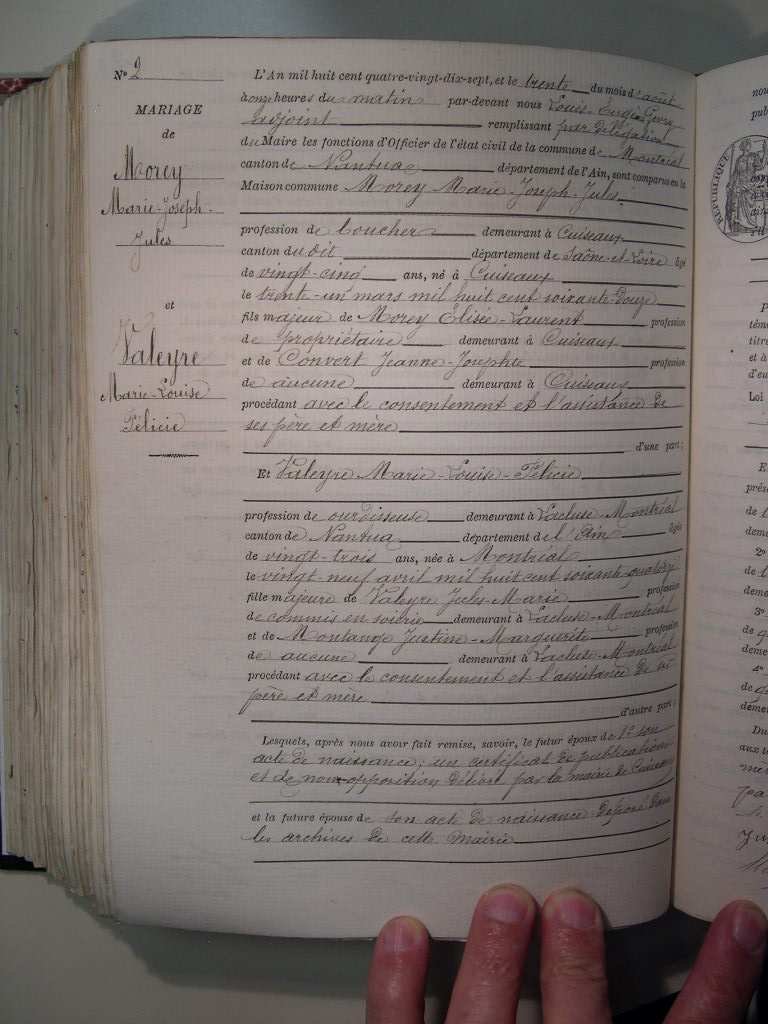 N° 2
MARIAGE
de
Morey
Marie-Joseph-
Jules
et
Valeyre
Marie-Louise
Félicie
L'An mil huit cent quatre-vingt-dix-sept, et le trente du mois d'août
à onze heures du matin par-devant nous Louis-Eugène
adjoint remplissant par délégation
du Maire les fonctions d'Officier de l'état civil de la commune de Montréal
canton de Nantua département de l'Ain, sont comparus en la
Maison commune Morey Marie-Joseph-Jules
profession de boucher demeurant à Cuiseaux
canton du dit département de Saône-et-Loire âgé
de vingt-cinq ans, né à Cuiseaux
le trente-un mars mil huit cent soixante-douze
fils majeur de Morey Elisée-Laurent profession
de propriétaire demeurant à Cuiseaux
et de Convert Jeanne-Josephte profession
de aucune demeurant à Cuiseaux
procédant avec le consentement et l'assistance de
ses père et mère
d'une part;
Et Valeyre Marie-Louise-Félicie
profession de ourdisseuse demeurant à Lacluse-Montréal
canton de Nantua département de l'Ain âgée
de vingt-trois ans, née à Montréal
le vingt-neuf avril mil huit cent soixante-quatorze
fille majeure de Valeyre Jules-Marie profession
de commis en soierie demeurant à Lacluse-Montréal
et de Montange Justine-Marguerite profession
de aucune demeurant à Lacluse-Montréal
procédant avec le consentement et l'assistance de ses
père et mère
d'autre part;
Lesquels, après nous avoir fait remise, savoir, le futur époux de 1° son
acte de naissance; un certificat de publication
et de non-opposition délivré par la mairie de Cuiseaux
et la future épouse de son acte de naissance déposé dans
les archives de cette mairie
RÉPUBLIQUE